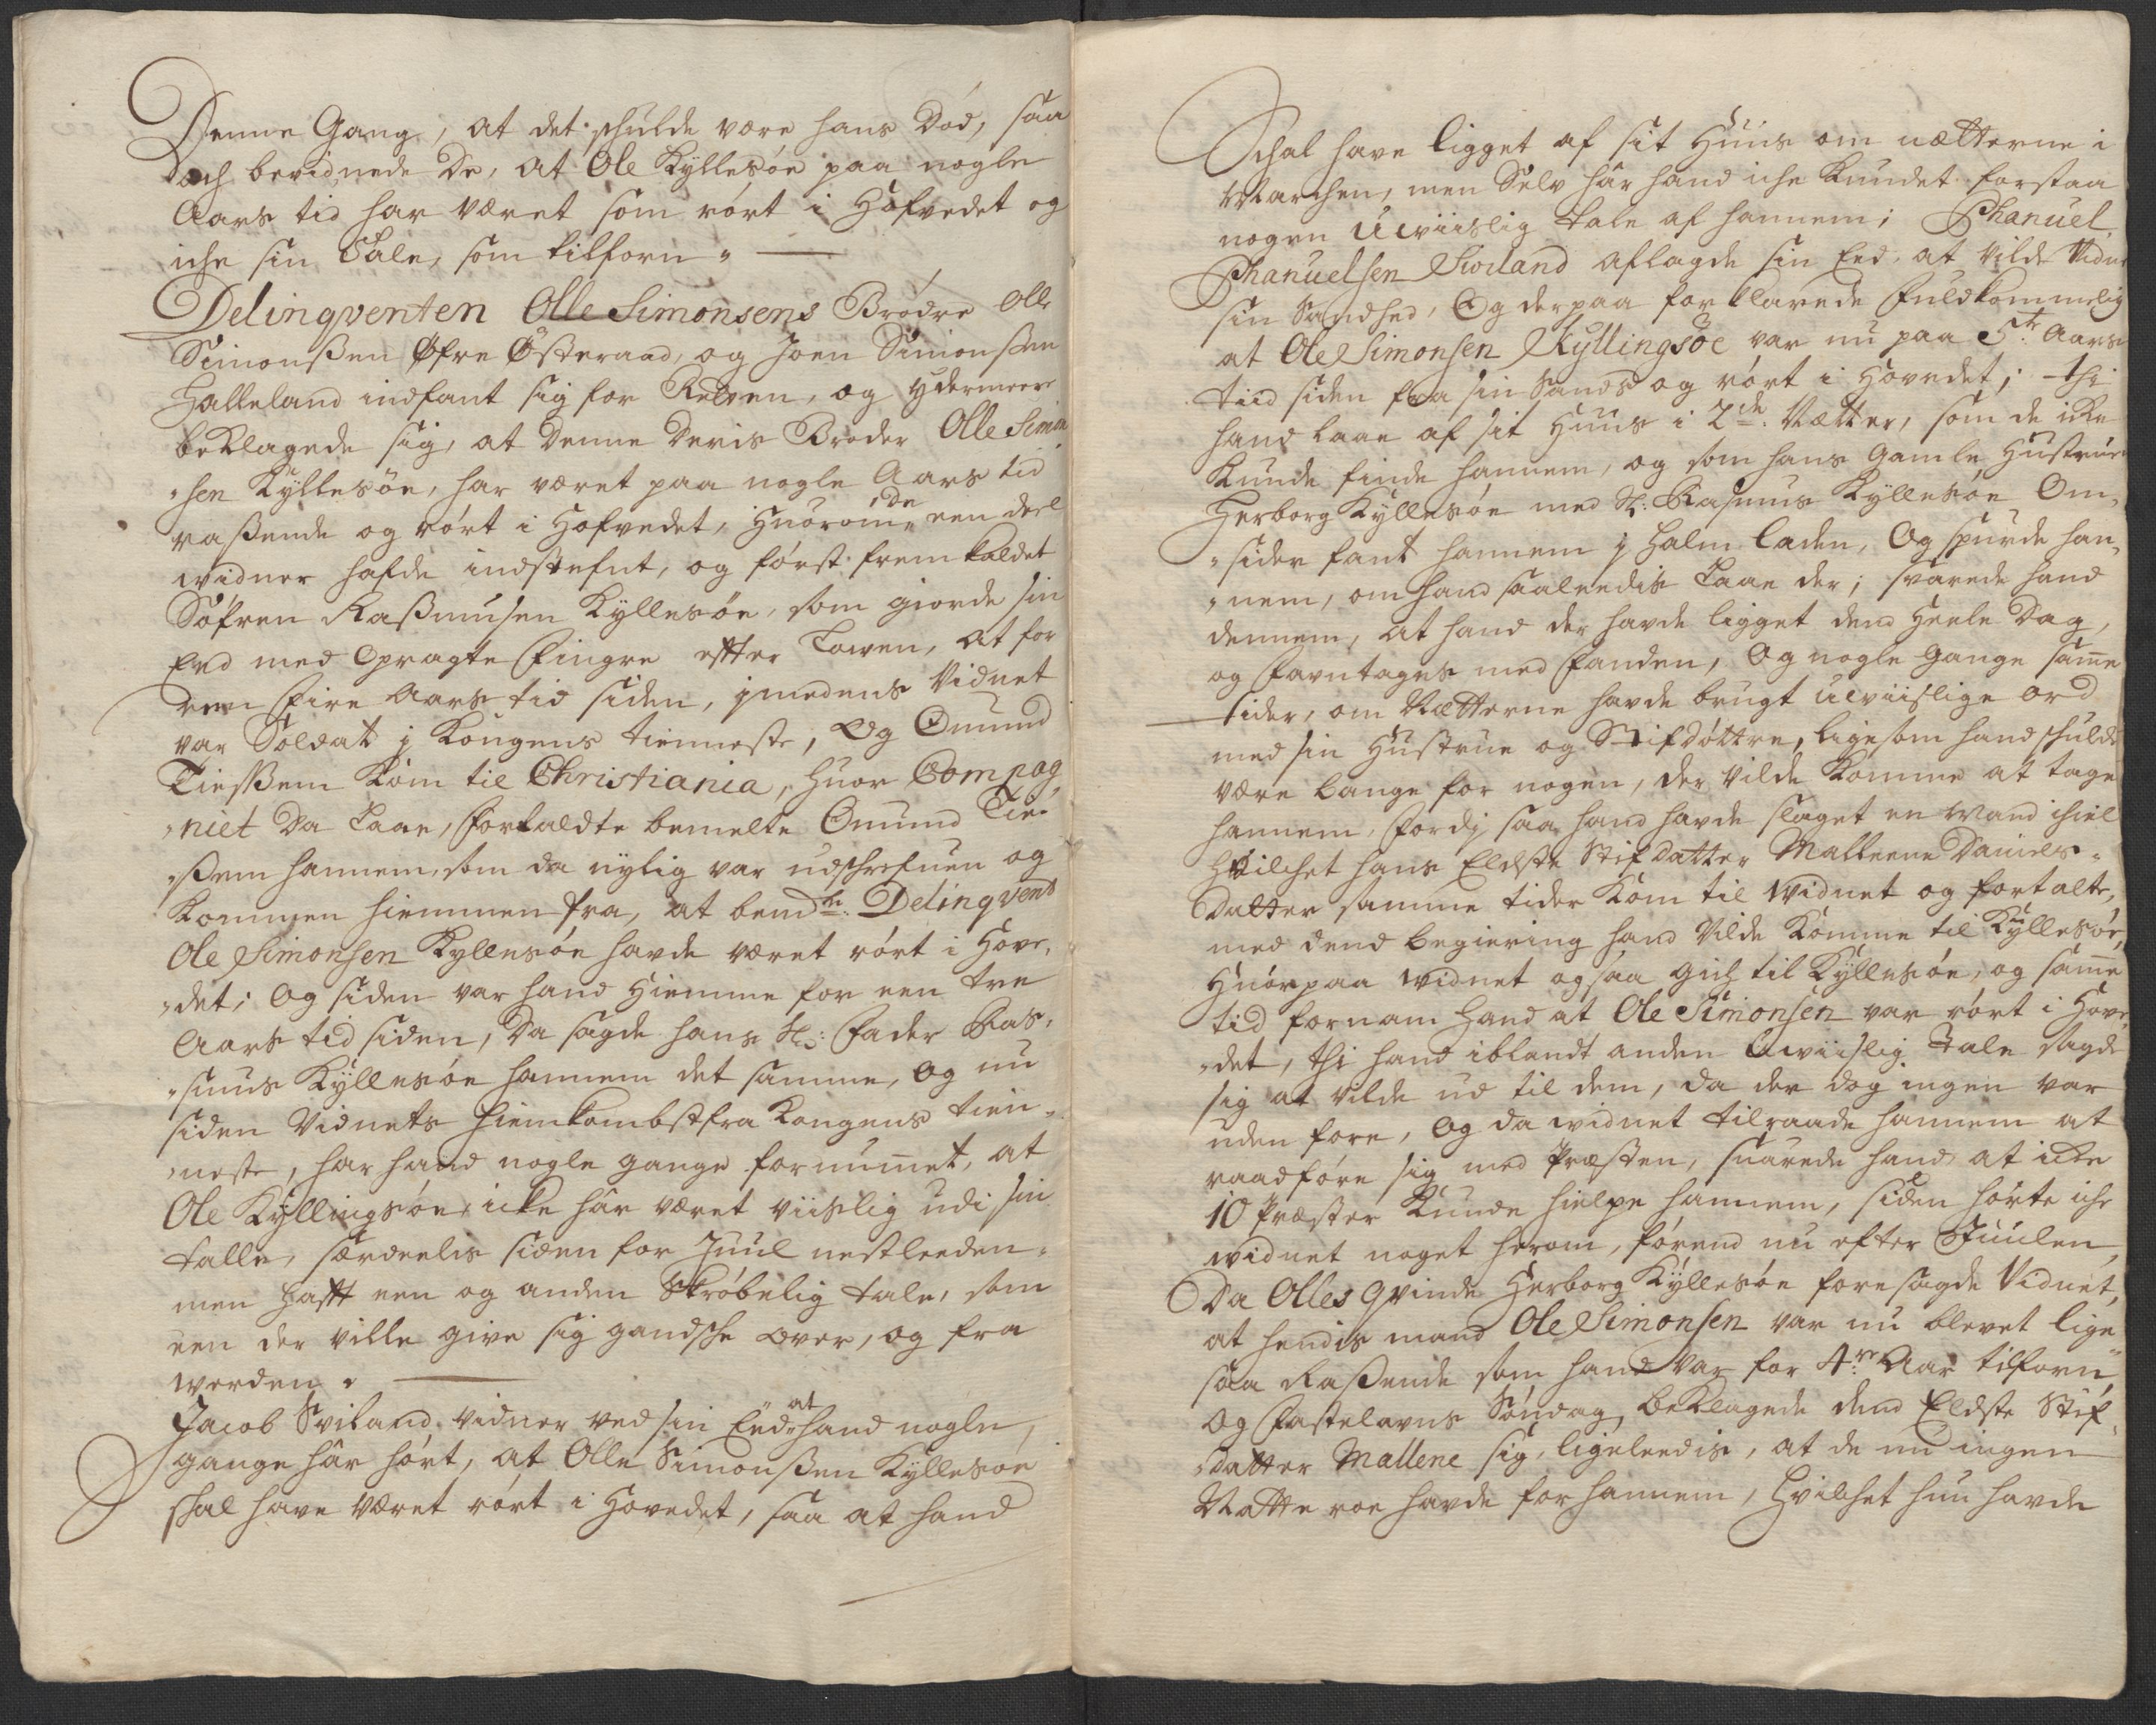 Denne Gang, at det schulde være hans Død, saa
doch bevidnede De, at Ole Kyllesøe paa nogle
Aars tid har været som rørt i Hofvedet og
iche sin Tale, som tilforn.
Delinqventen Olle Simonsens Brødre Olle
Simonßen Øfre Østeraad, og Joen Simonßen
Halleland indfant sig for Retten, og ydermeere
beklagede sig, at denne deris Broder Olle Simon
sen Kyllesøe, har været paa nogle Aars tid
raßende og rørt i Hofvedet, Huorom de een deel
widner hafde indstefnt, og først fremkaldet
Søfren Raßmusen Kyllesøe, som giorde sin
Eed med Opragte Fingre efter Lowen, at for
een Fire Aars tid siden, imedens Vidnet
var Soldat i Kongens tienneste, Og Omund
Tiesßem kom til Christiania, huor Compag
niet da Laae, Fortældte bemelte Omund Tie
ßem hannem, som da nylig var udschrefuen og
kommen hiemmen fra, at bemdte: Delinqvent
Ole Simonsen Kyllesøe havde været rørt i Hove
det; Og siden var hand Hiemme for een tre
Aars tid siden, da sagde hans Sl: Fader Ras
mus Kyllesøe hannem det samme, og nu
siden Vidnets Hiemkombst fra Kongens tien
neste, har hand nogle gange fornummet, at
Ole Kyllingsøe icke här været viislig udi sin
talle, særdeelis siden for Juul nestleeden
men hafft een og anden Skrøbelig tale, som
een der ville give sig gandsche over, og fra
werden.
Jacob Sviland vidner ved sin Eed at hand nogle
gange här hørt, at Olle Simonßen Kyllesøe
schal have været rørt i Hovedet, saa at hand
Schal have ligget af sit Huus om nætterne i
Marchen, men Selv här hand iche kundet forstaa
nogen Uwiislig tale af hannem; Phanuel
Phanuelsen Swiland aflagde sin Eed, at vilde vidne
sin Sandhed, Og derpaa forklarede Fuldkommelig
at Ole Simonsen Kyllingsøe var nu paa 5te Aars
tiid siden fra sin Sands og rørt i Hovedet; thi
hand laae af sit Huus i 2de: Nætter, som de icke
kunde finde hannem, og som hans gamle Hustrue
Herborg Kyllesøe med Sl: Rasmus Kyllesøe Om
sider fant hannem i halm laden, Og spurde han
nem, om hand saaleedis Laae der; svarede hand
dennem, at hand der havde ligget dend Heele Dag,
og Favntages med Fanden, Og nogle gange samme
tider, om Nætterne havde brugt uwiislige ord
med sin Hustrue og Stifdøttre, ligesom hand schulde
være bange for nogen, der vilde komme at tage
hannem, fordj saa hand havde slaget en Mand ihiel
hvilchet hans Eldste Stifdatter Malleene Daniels
datter samme tider kom til Widnet og fortalte,
med dend begiering hand vilde komme til Kyllesøe,
Huorpaa widnet ogsaa gich til Kyllesøe, og samme
tid fornam Hand at Ole Simonsen var rørt i Hove
det, thi hand iblandt anden Uwiislig Tale sagde
sig at vilde ud til dem, da der dog ingen var
uden fore, Og da widnet tilraade hannem at
raadføre sig med Præsten, suarede hand at icke
10 Præster kunde hielpe hannem, siden hørte iche
widnet noget herom, førend nu efter Juulen,
Da Olles Qvinde Herborg Kyllesøe foresagde Vidnet,
at hendis mand Ole Simonsen var nu blevet lige
saa Raßende som hand var for 4re Aar tilforn,
Og Fastelavns Søndag beklagede dend Eldste Stif
datter Mallene sig, ligeleedis, at de nu ingen
Natte roe havde for hannem, Hvilchet hun havde